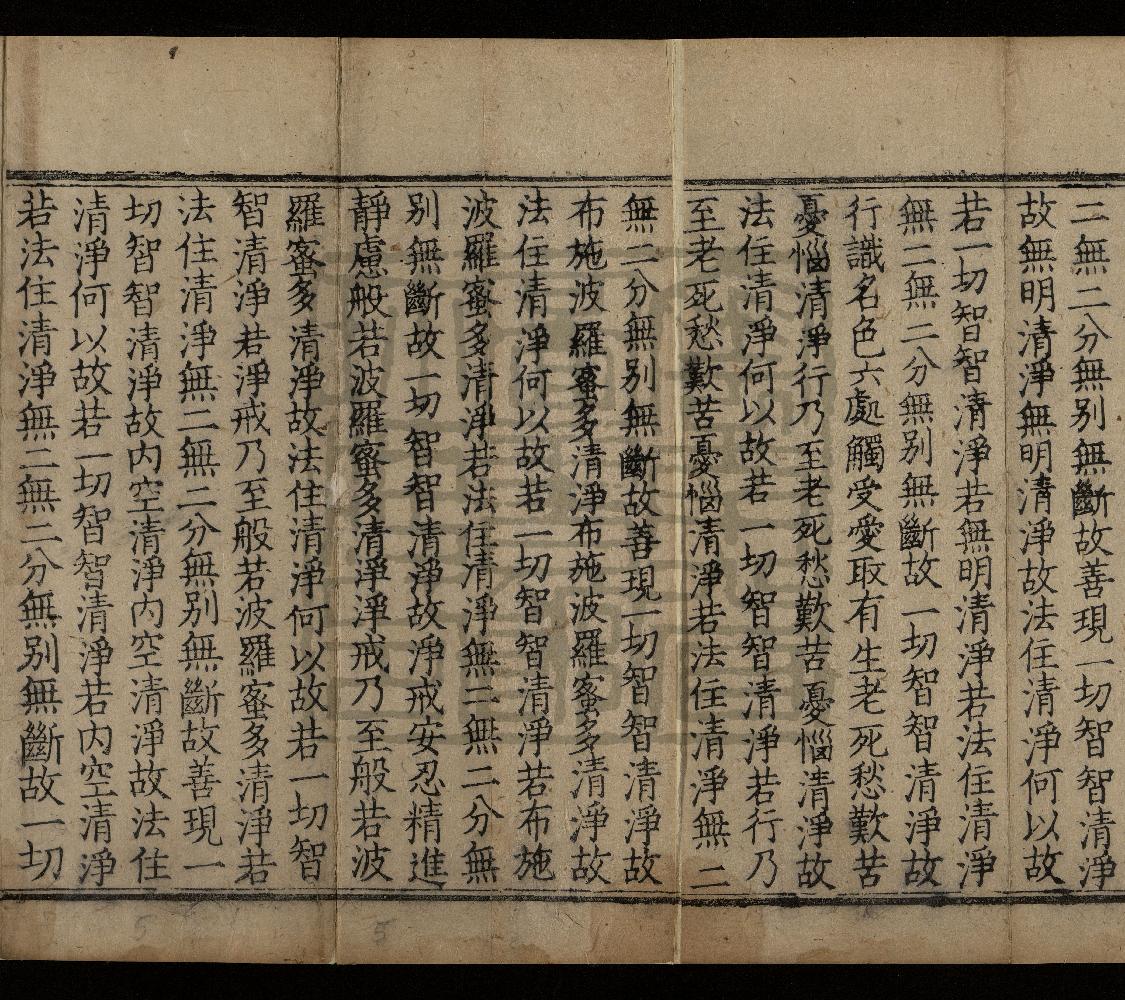 二無二分無別無斷故善現一切智智清淨
故無明清淨無明清淨故法住清淨何以故
若一切智智清淨若無明清淨若法住清淨
無二無二分無別無斷故一切智智清淨故
行識名色六處觸受愛取有生老死愁歎苦
憂惱清淨行乃至老死愁歎苦憂惱清淨故
法住清淨何以故若一切智智清淨若行乃
至老死愁歎苦憂惱清淨若法住清淨無二
無二分無別無斷故善現一切智智清淨故
布施波羅蜜多清淨布施波羅蜜多清淨故
法住清淨何以故若一切智智清淨若布施
波羅蜜多清淨若法住清淨無二無二分無
別無斷故一切智智清淨故淨戒安忍精進
靜慮般若波羅蜜多清淨淨戒乃至般若波
羅蜜多清淨故法住清淨何以故若一切智
智清淨若淨戒乃至般若波羅蜜多清淨若
法住清淨無二無二分無別無斷故善現一
切智智清淨故內空清淨內空清淨故法住
清淨何以故若一切智智清淨若內空清淨
若法住清淨無二無二分無別無斷故一切